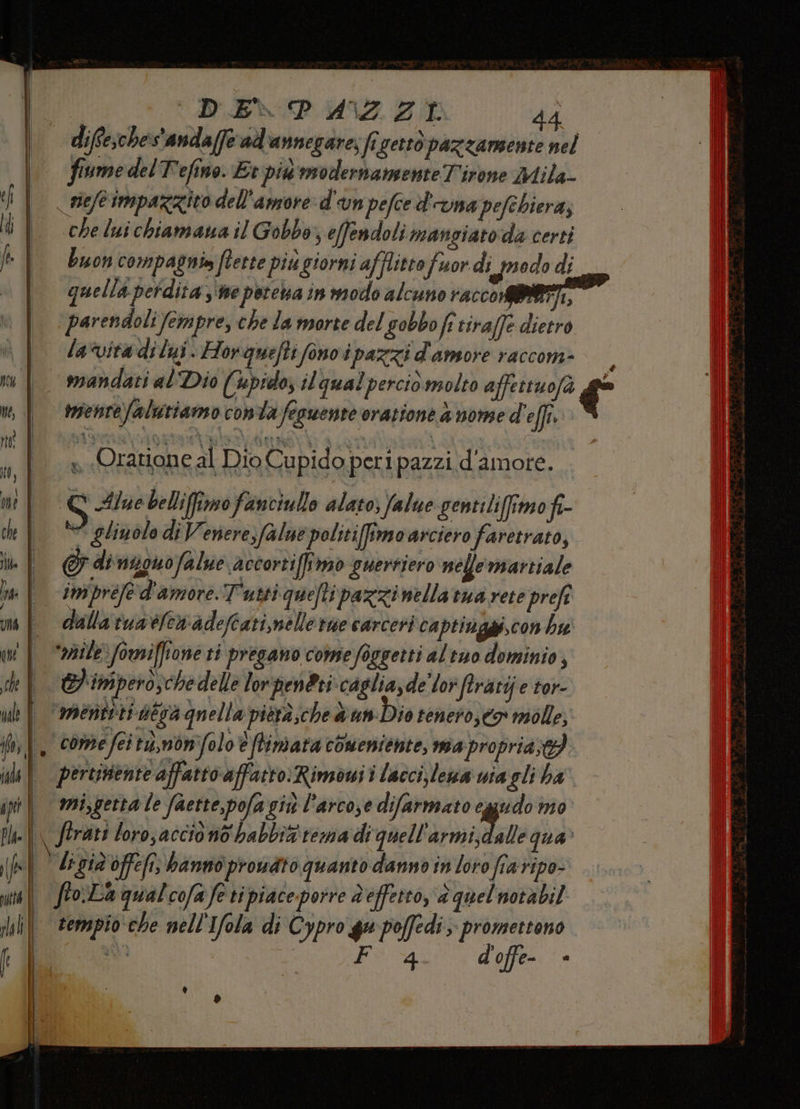 DE' PAZZI. 44
disse, che s'andasse ad annegare, si gettò pazzamente nel
fiume del Tesino. Et più modernamente Tirone Mila-
nese impazzito dell'amore d'vn pesce d'vna peschiera,
che lui chiamaua il Gobbo, essendoli mangiato da certi
buon compagni, stette più giorni afflitto fuor di modo di
quella perdita, ne poteua in modo alcuno
parendoli sempre, che la morte del gobbo si tirasse dietro
la vita di lui. Hor questi sono i pazzi d'amore raccom-
mandati al Dio Cupido, il qual perciò molto affettuosa
mente salutiamo con la seguente oratione à nome d'essi.
Oratione al Dio Cupido per i pazzi d'amore.
SAlue bellissimo fanciullo alato, salue gentilissimo fi-
gliuolo di Venere, salue politissimo arciero faretrato,
& di nuouo salue accortissimo guerriero nelle martiale
imprese d'amore. Tutti questi pazzi nella tua rete presi
dalla tua esca adescati, nelle tue carceri captiuati, con hu
mile somissione ti pregano come soggetti al tuo dominio,
& imperò, che delle lor penetri caglia, de' lor stratij e tor-
menti ti nega quella pietà, che à un Dio tenero, & molle,
come sei tù, non solo è stimata coueniente, ma propria, &
pertinente affatto affatto. Rimoui i lacci, leua uia gli ha
mi, getta le saette, posa giù l'arco, e disarmato e nudo mo
strati loro, acciò nō habbiā tema di quell'armi, dalle qua
li già offesi, hanno prouato quanto danno in loro sia ripo-
sto. La qual cosa se ti piace porre à effetto, à quel notabil
tempio che nell'Isola di Cypro gu possedi, promettono
F 4 d'offe-